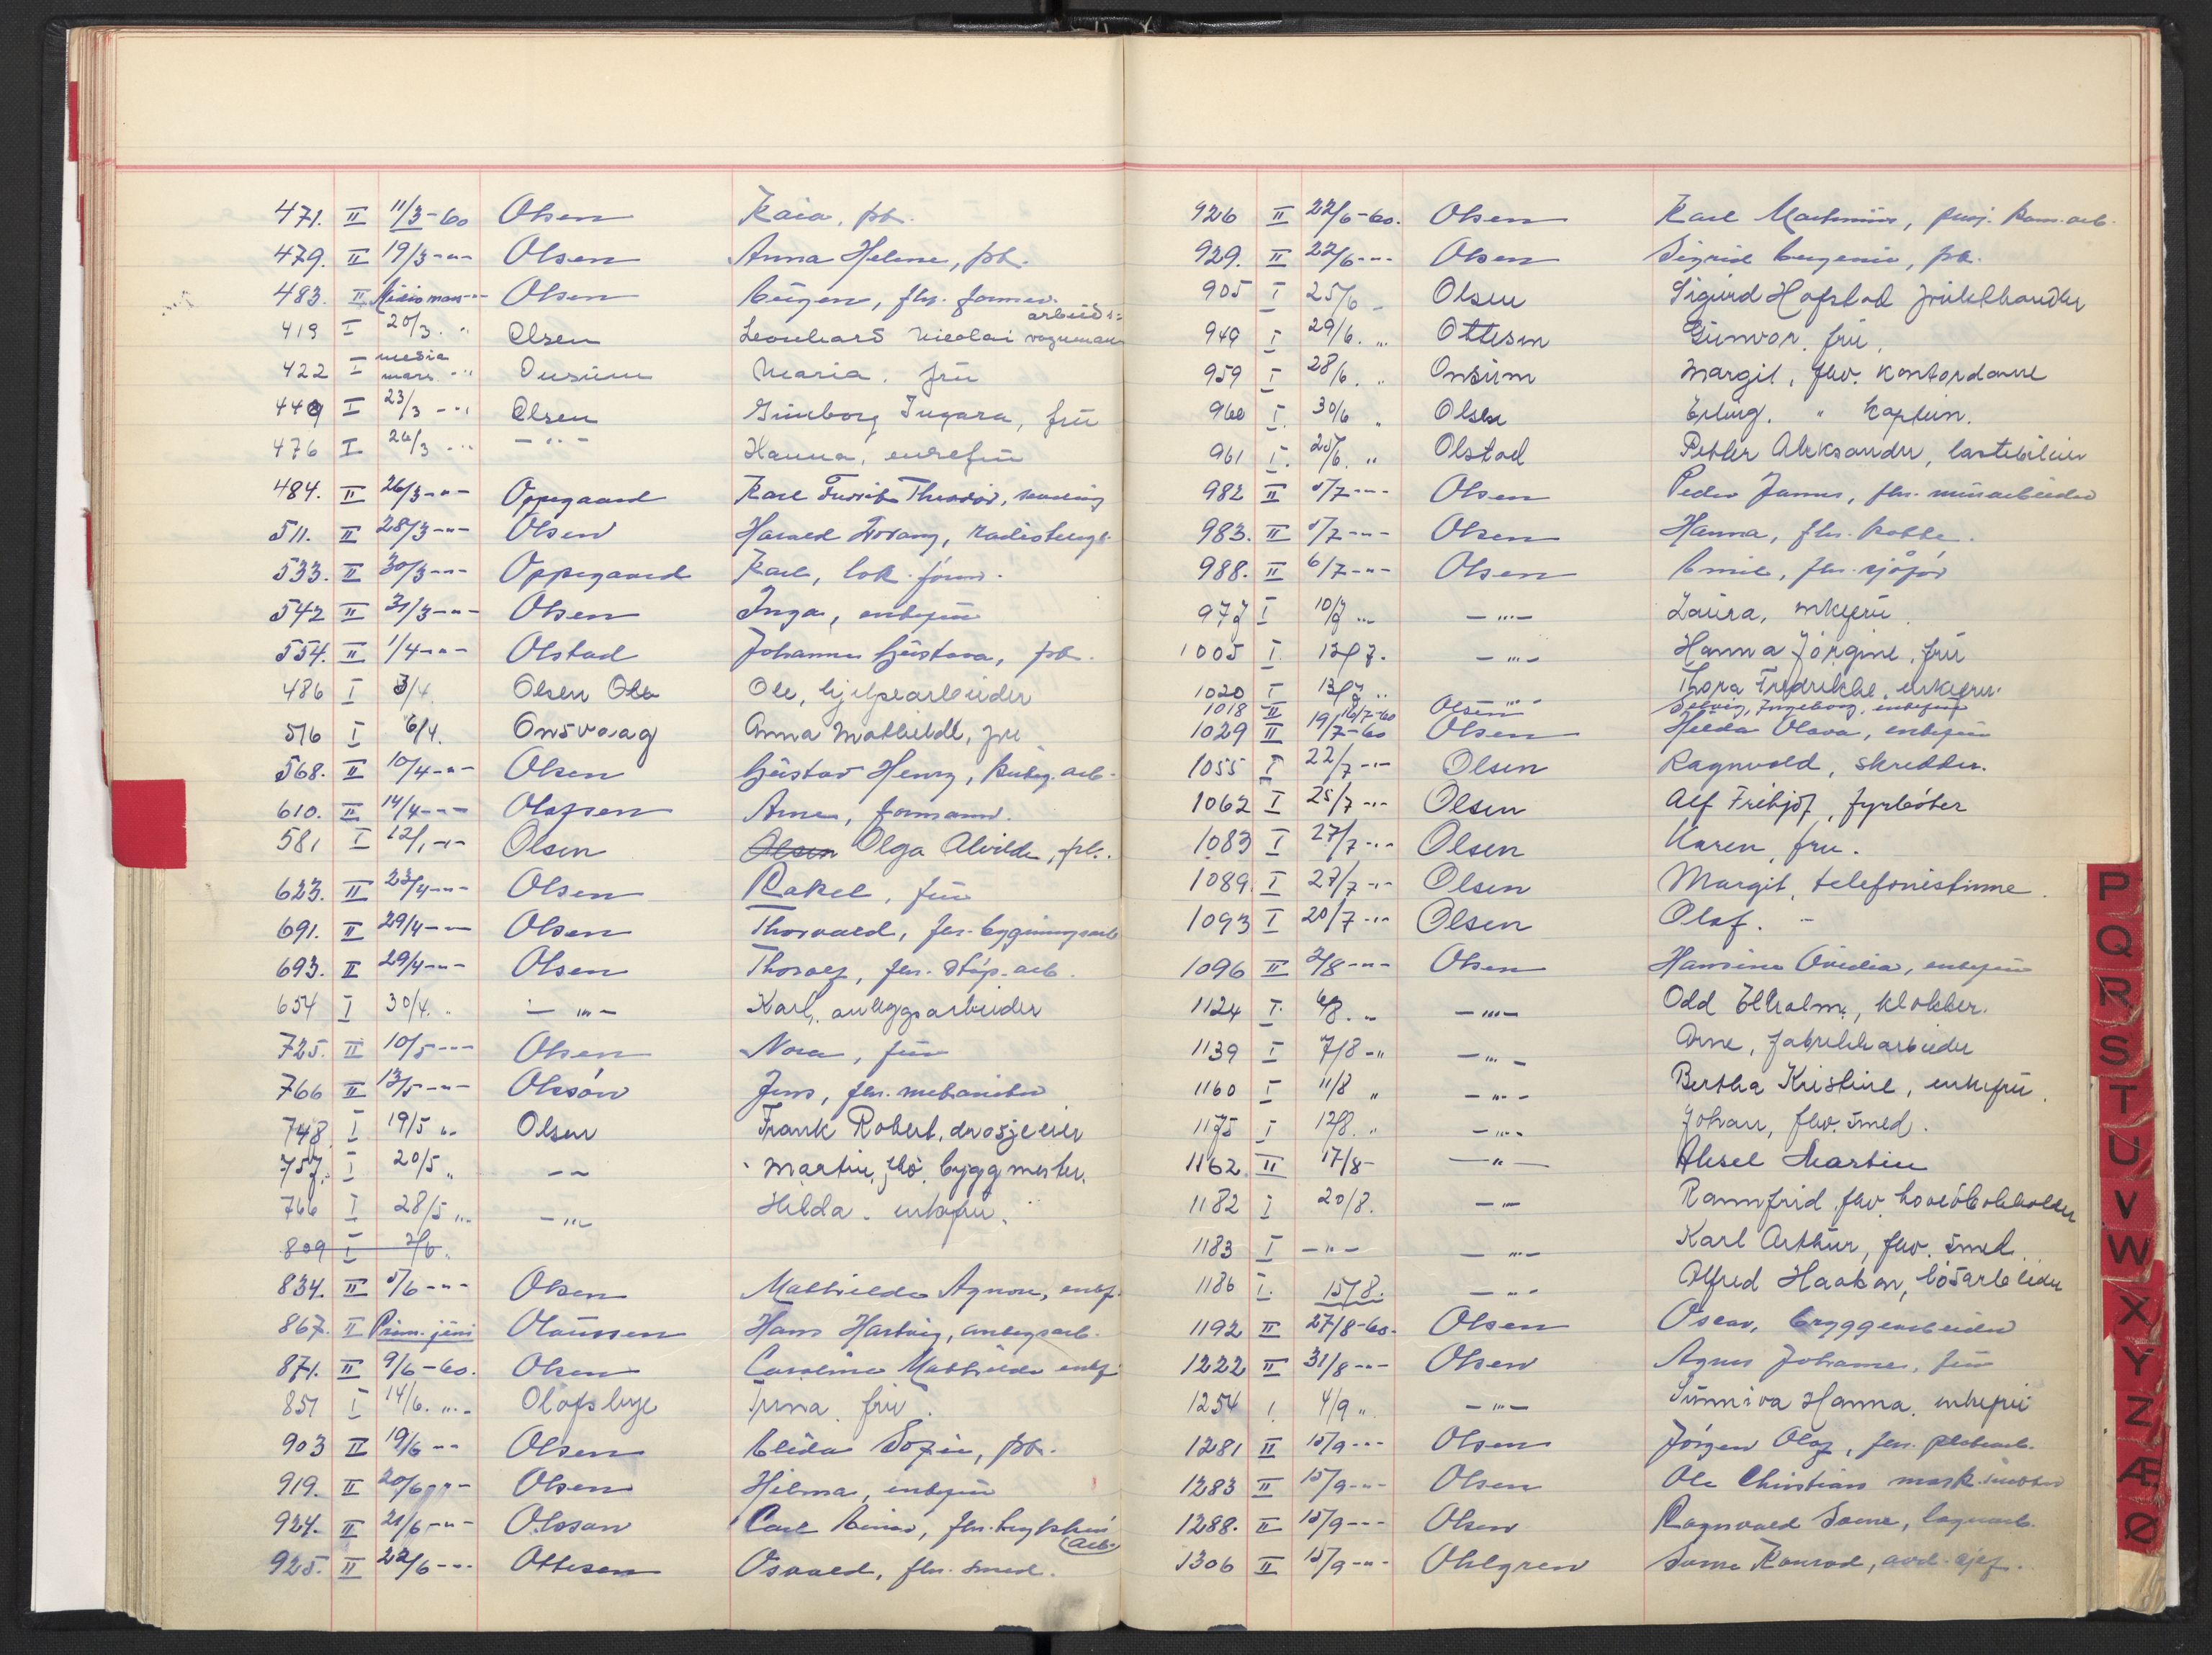 471. II 11/3-60 Olsen Kaia, pb.
479. II 19/3-"- Olsen Anna Helene, pb.
483. II Olsen
arbeids=
419 I 20/3. " Olsen Leonhard Nicolai vognmann
422 I media mars -" Maria, frü
449 I 23/3 -" Olsen Ingara, frü
476 I 26/3 -" -"- Hanna, enkefrü
484. II 26/3-"- Oppegaard Karl Theodor,
511. II 28/3-"- Olsen Harald
533. II 30/3-"- Oppegaard Karl, lok.
542 II 31/3-"- Olsen Inga, enkefrü
554. II 1/4-"- Olstad Johanne Güstava, pb.
486 I 3/4 Olsen Ole, hjelpearbeider
516 I 6/4. Onsvaag Anna Mathilde, frü
568. II 10/4-"- Olsen Güstav Henry,
610. II 14/4-"- Olafsen Arne, formann.
581 I Olsen Olsen Olga Alvilde, pb.
623. II 23/4-"- Olsen Rakel, frü
691. II 29/4-"- Olsen Thorvald, fhv. bygningsarb
693. II 29/4-"- Olsen Thoralf, fhv. støp. arb.
654 I 30/4. " -"- Karl, anleggsarbeider
725. II 10/5-"- Olsen Nora, frü
766 II 13/5-"- Olssón Jens, fhv. mekaniker
748 I 19/5 " Olsen Frank Robert, drosjeeier
757. I 20/5 " -- Martin, fhv. byggmester.
766 I 28/5 " -"- Hilda. enkefrü.
809 I 2/6.
834. II 5/6-"- Olsen Mathilde Agnore, enkf.
867. II Prim. jüni Olaüssen Hans Hartvig, anlegsarb.
871. II 9/6-60. Olsen Caroline Mathilde enkf.
851 I 14/6. " Trina. frü.
903 II 19/6-"- Olsen Elida Sofie, pb.
919. II 20/6-"- Olsen Hilma, enkefrü
924. II 21/6-"- Olsson Carl Einar, fhv.
arb.
925. II 22/6-"- Ottesen Osvald, fhv. smed.
926 II 22/6-60. Olsen Karl
929. II 22/6-"- Olsen Sigrid Eugenie, pb.
905 I 25/6 - Olsen Sigürd Hofstad
949 I 29/6. " Ottesen Günvor. frü.
959 I 28/6. " Onsüm Margit, fhv. kontordame
960 I. 30/6 " Olsen Erling. " kaptein.
961 I. 25/6. " Olstad Petter Aleksander, lastebileier
982 II 5/7-"- Olsen Peder James, fhv. mürarbeider
983. II 5/7-"- Olsen Hanna, fhv. kokke.
988. II 6/7-"- Olsen Emil, fhv. sjåfør
977 I 10/7 " -"- Laüra, enkefrü.
1005 I. 13/7. -"- Hanna Jørgine, frü
1020 I 13/7 " -"- Thora Fredrikke, enkefrü.
1018 II 16/7-60 Olsen Solveig, Ingeborg, enkefrü
1029 II 19/7-60 Olsen Hilda Olava, enkefrü
1055 I 22/7 -"- Olsen Ragnvald, skredder.
1062 I 25/7 -"- Olsen Alf Frithjof, fyrbøter
1083 I 27/7 -"- Olsen Karen, fru.
1089. I 27/7 -"- Olsen Margit, telefonistinne.
1093 I 20/7 -"- Olsen Olaf. -
1096 II 2/8-"- Olsen Hansine Ovidia, enkefrü
1124 I. 6/8. " -"- Odd Elholm, klokker.
1139 I 7/8 -" -"- Arne, fabrikkarbeider
1160 I 11/8 " -"- Bertha Kristine, enkefrü.
1175 I 12/8. " -"- Johan, fhv. smed.
1162. II 17/8- -"- Aksel Martin
1182 I 20/8. -"- Rannfrid, fhv. hovedbokholder
1183 I -"- -"- Karl Arthür, fhv. smed.
1186 I. 15/8. -"- Alfred Haakon, løsarbeider
1192 II 27/8-60. Olsen Oscar, bryggearbeider
1222 II 31/8-"- Olsen Agnes Johanne, frü
1254 I 4/9 " -"- Sünniva Hanna. enkefrü
1281 II 15/9-"- Olsen Jörgen Olaf, fhv.
1283 II 15/9-"- Olsen Ole Christian
1288. II 15/9-"- Olsen Ragnvald
1306 II 15/9-"- Ohlgren Konrad, avd. sjef.
P
Q
R
S
T
U
V
W
X
Y
Z
Æ
Ø